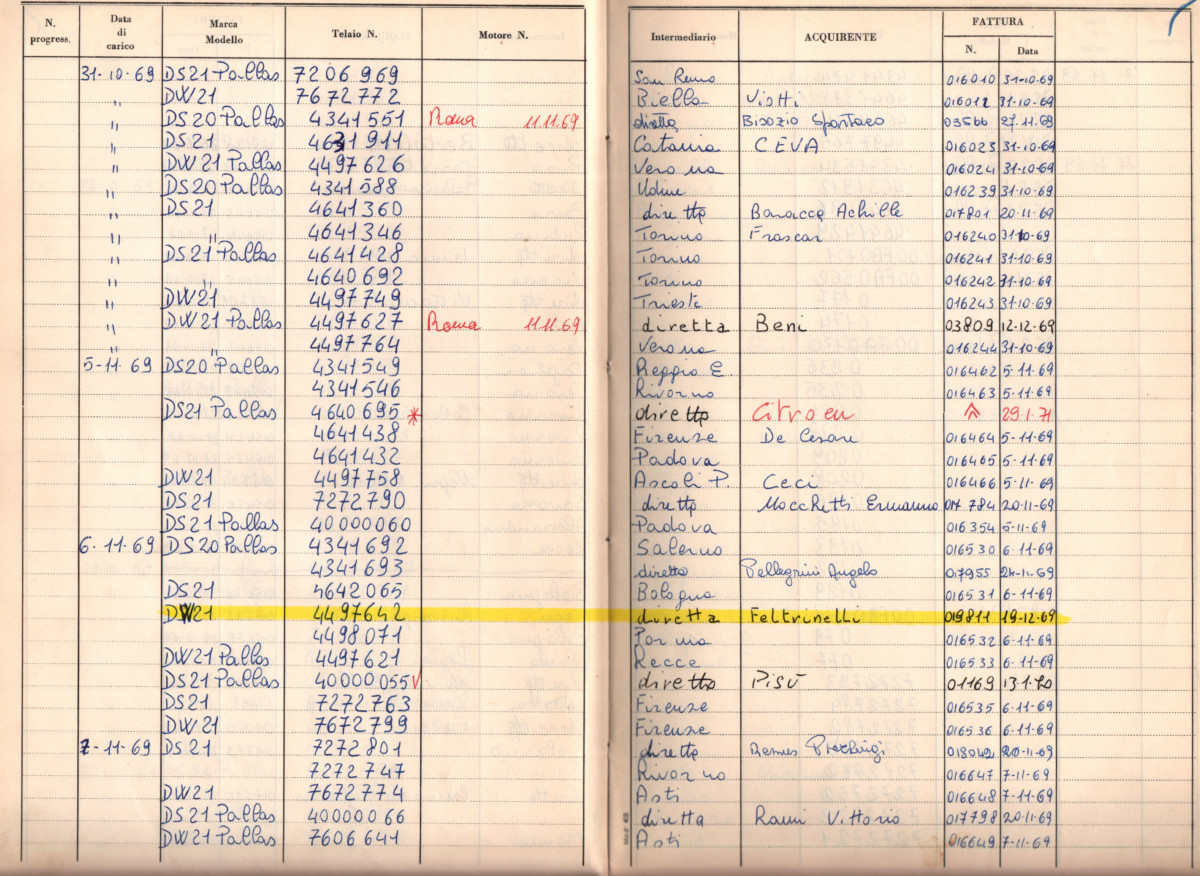 N. progress. Data di carico Marca Modello Telaio N. Motore N. Intermediario ACQUIRENTE FATTURA N. Data
31-10-69 DS21 Pallas 7206969 San Remo 016010 31-10-69
" DW21 7672772 Biella Viotti 016012 31-10-69
" DS20 Pallas 4341551 Roma 11.11.69 diretta Bisozio Spartaco 03566 27-11-69
" DS21 4631911 Catania CEVA 016023 31-10-69
" DW21 Pallas 4497626 Verona 016024 31-10-69
" DS20 Pallas 4341588 Udine 016239 31-10-69
" DS21 4641360 diretta Bonacca Achille 017801 20-11-69
" " 4641346 Torino Frascar 016240 31-10-69
" DS21 Pallas 4641428 Torino 016241 31-10-69
" 4640692 Torino 016242 31-10-69
" DW21 4497749 Trieste 016243 31-10-69
" DW21 Pallas 4497627 Roma 11.11.69 diretta Beni 03809 12-12-69
" " 4497764 Verona 016244 31-10-69
5-11-69 DS20 Pallas 4341549 Reggio E. 016462 5-11-69
4341546 Rivorno 016463 5-11-69
DS21 Pallas 4640695 * diretto Citroen 29.1.71
4641438 Firenze De Cesare 016464 5-11-69
4641432 Padova 016465 5-11-69
DW21 4497758 Ascoli P. Ceci 016466 5-11-69
DS21 7272790 diretto Mocchetti Ermanno 017784 20-11-69
DS21 Pallas 40000060 Padova 016354 5-11-69
6-11-69 DS20 Pallas 4341692 Salerno 016530 6-11-69
4341693 diretto Pellegrini Angelo 017955 24-11-69
DS21 4642065 Bologna 016531 6-11-69
DW21 4497642 diretta Feltrinelli 019811 19-12-69
4498071 Parma 016532 6-11-69
DW21 Pallas 4497621 Recce 016533 6-11-69
DS21 Pallas 40000055 diretto Pisù 01169 13.1.70
DS21 7272763 Firenze 016535 6-11-69
DW21 7672799 Firenze 016536 6-11-69
7-11-69 DS21 7272801 diretto Pierluigi 018042 20-11-69
7272747 Rivorno 016647 7-11-69
DW21 7672774 Asti 016648 7-11-69
DS21 Pallas 4000066 diretta Rami Vittorio 017798 20-11-69
DW21 Pallas 7606641 Asti 016649 7-11-69